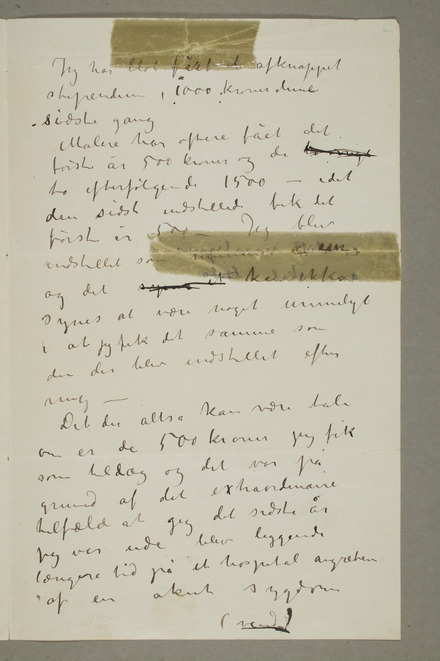 Jeg har blot fået et afknappet
stipendium, 1000 kroner denne
sidste gang
Malere har oftere fået det
første år 500 kroner og de
to efterfølgende 1500 — idet
den sidst indstillede fik det
første år 500 — Jeg blev
indstillet som
og det kan ikke
synes at være noget urimeligt
i at jeg fik det samme som
den der blev indstillet efter
mig —
Det der altså kan være tale
om er de 500 kroner jeg fik
som tillæg og det var på
grund af det extraordinaire
tilfælde at jeg det sidste år
jeg var ude blev liggende
længere tid på et hospital angreben
af en akut sygdom
(vend)